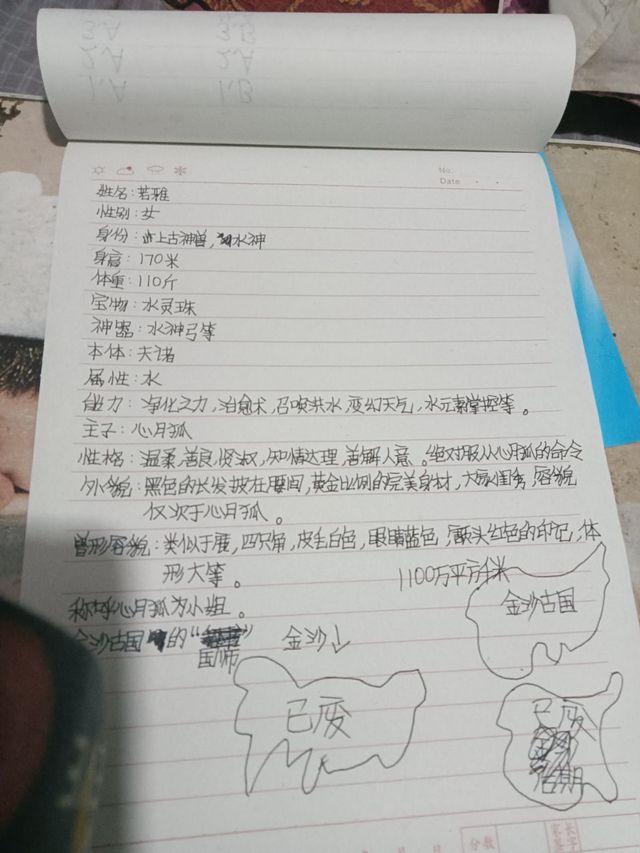 No.
Date
姓名：若雅
性别：女
身份：上古神兽，水神
身高：170米
体重：110斤
宝物：水灵珠
神器：水神弓等
本体：夫诸
属性：水
能力：净化之力，治愈术，召唤洪水，变幻天气，水元素掌控等。
主子：心月狐
性格：温柔，善良，贤淑，知情达理，善解人意。绝对服从心月狐的命令
外貌：黑色的长发披在腰间，黄金比例的完美身材，大家闺秀，容貌
仅次于心月狐。
兽形容貌：类似于鹿，四只角，皮毛白色，眼睛蓝色，额头红色的印记，体
形大等。
1100万平方千米
金沙古国
称呼心月狐为小姐。
金沙古国的“
”
国师
金沙
已废
已废
后期
分数
家长
签字